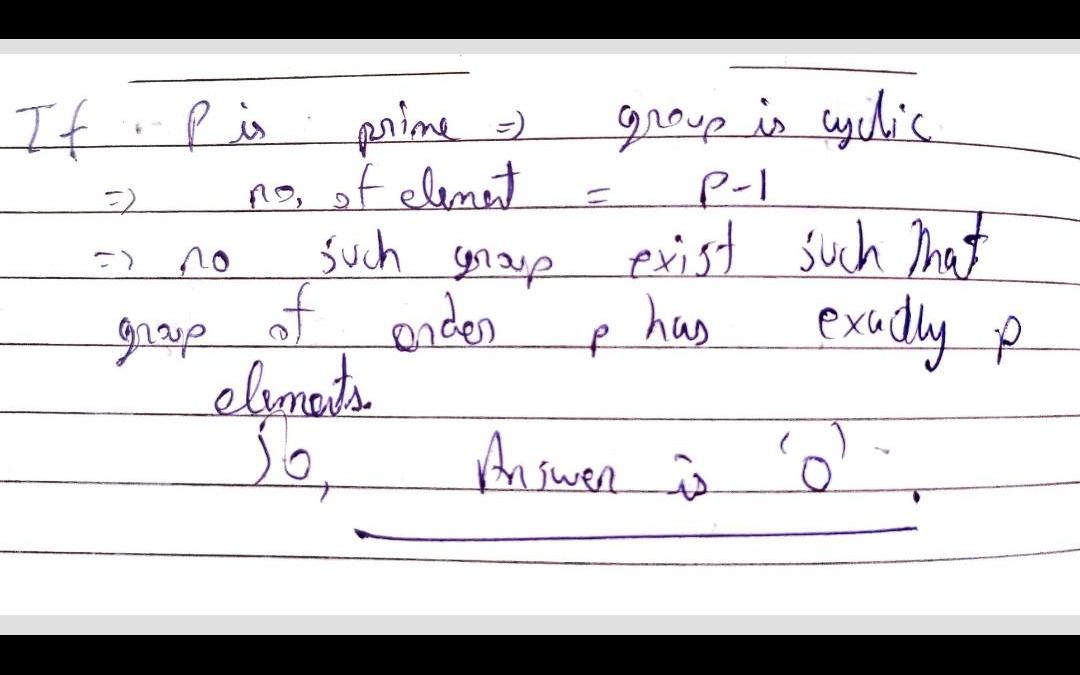 If P is prime => group is cyclic
=> no. of element = P-1
=> no such group exist such that
group of order p has exactly p
elements.
So, Answer is '0'.